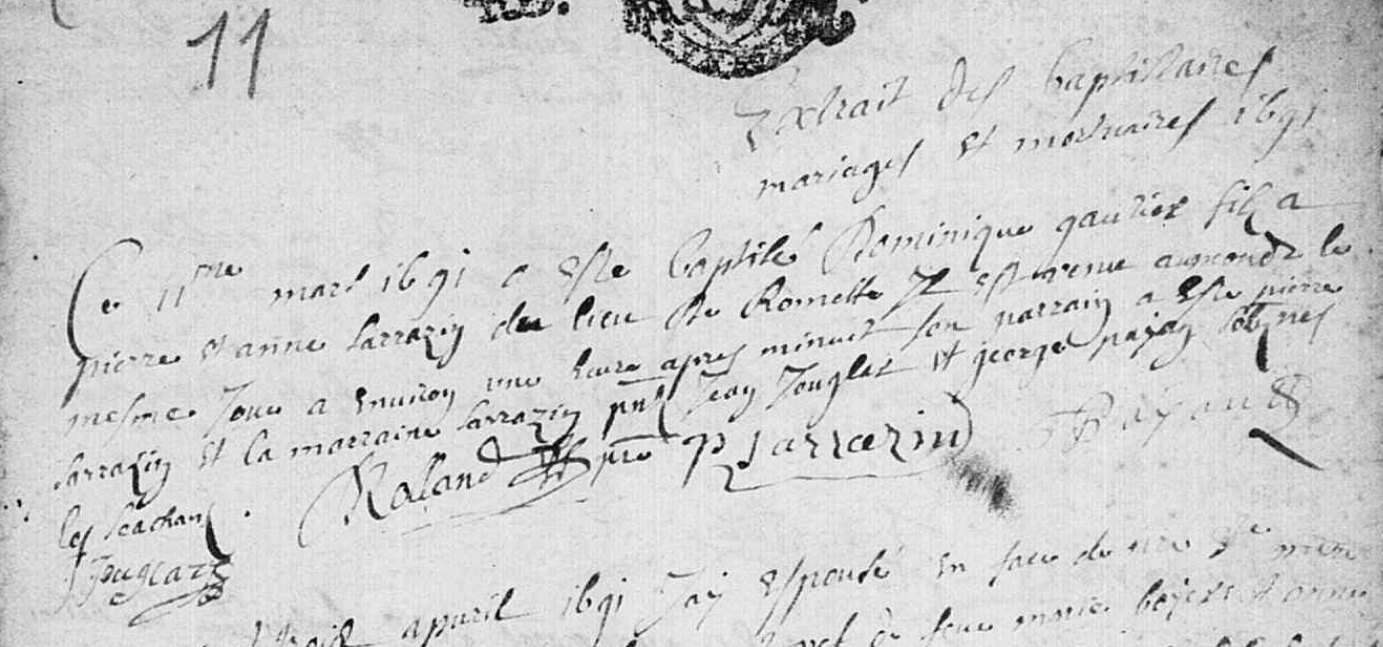 11
Extrait des baptistaires
mariages et mortuaires 1691
Ce 11me mars 1691 a este baptise Dominique gautier filz a
pierre et anne sarrazin du lieu de Romette Il est venu au monde le
mesme Jour a environ une heure apres minuit son parrain a este pierre
sarrazin et la marraine sarrazin pnt Jean Jouglar et george payan soubsnes
les sachant. Roland pre P Sarrazin Payan
J Juglar
apvril 1691 Jay espouse en face de nre Ste mere
de feue marie et anne